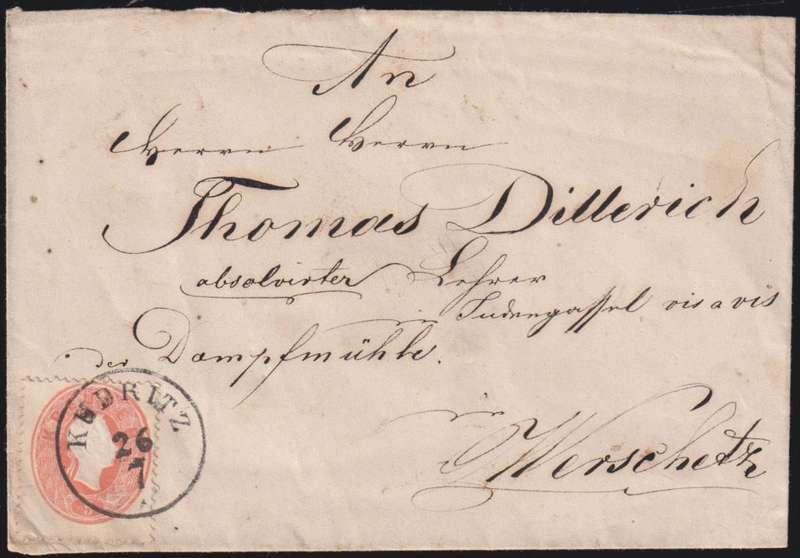 An
Herrn Herrn
Thomas Dillerich
absolvirter Lehrer
in Judengassel vis a vis
der Dampfmühle.
in Werschetz
KUDRITZ
26
7